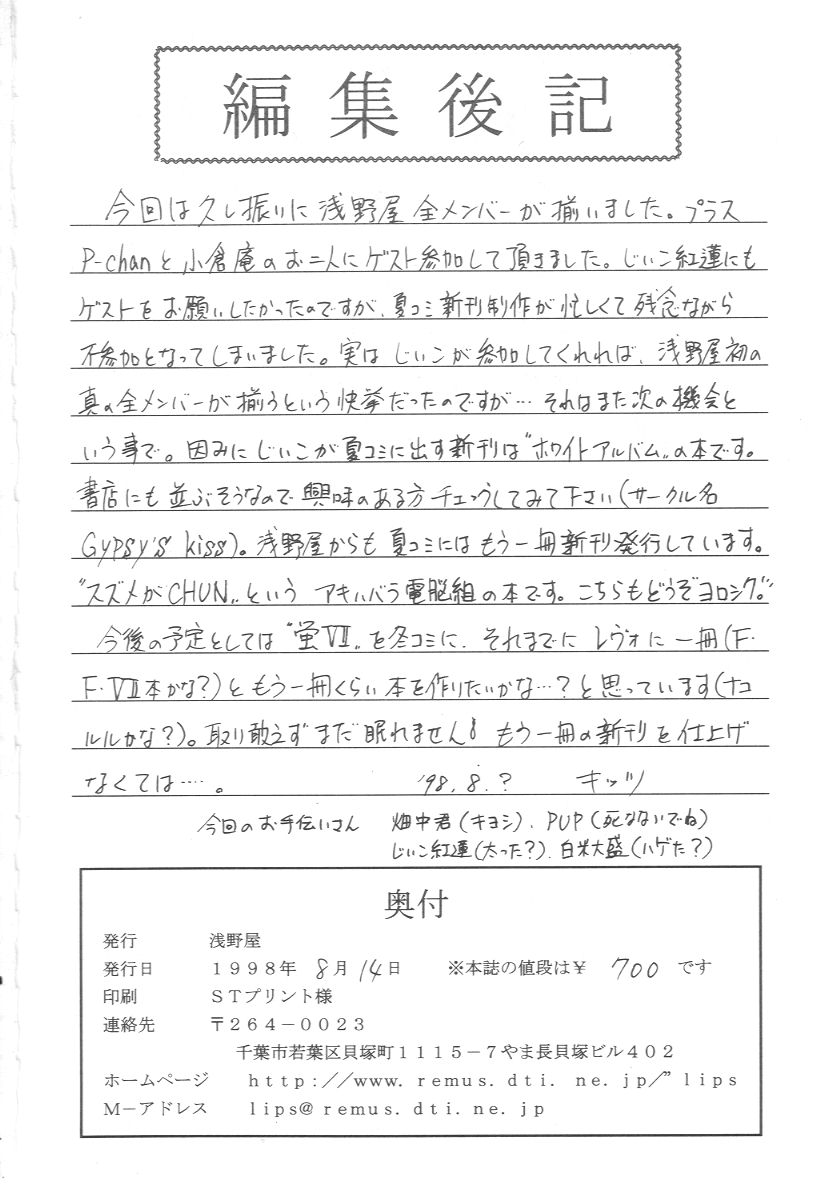 編集後記
今回は久し振りに浅野屋全メンバーが揃いました。プラス
P-chanと小倉庵のお二人にゲスト参加して頂きました。じぃこ紅蓮にも
ゲストをお願いしたかったのですが、夏コミ新刊制作が忙しくて残念ながら
不参加となってしまいました。実はじぃこが参加してくれれば、浅野屋初の
真の全メンバーが揃うという快挙だったのですが…それはまた次の機会と
いう事で。因みにじぃこが夏コミに出す新刊は“ホワイトアルバム„の本です。
書店にも並ぶそうなので興味のある方チェックしてみて下さい(サークル名
Gypsy's kiss)。浅野屋からも夏コミにはもう一冊新刊発行しています。
“スズメがCHUN„というアキハバラ電脳組の本です。こちらもどうぞヨロシク。
今後の予定としては“蛍VII„を冬コミに、それまでにレヴォに一冊(F.
F.VII本かな?)ともう一冊くらい本を作りたいかな…?と思っています(ナコ
ルルかな?)。取り敢えずまだ眠れません! もう一冊の新刊を仕上げ
なくては…。 '98.8.? キッツ
今回のお手伝いさん 畑中君(キヨシ)、PUP(死なないでね)
じぃこ紅蓮(太った?)、白米大盛(ハゲた?)
奥付
発行 浅野屋
発行日 1998年 8月14日 ※本誌の値段は¥ 700 です
印刷 STプリント様
連絡先 〒264-0023
千葉市若葉区貝塚町1115-7やま長貝塚ビル402
ホームページ http://www.remus.dti.ne.jp/"lips
M-アドレス lips@remus.dti.ne.jp